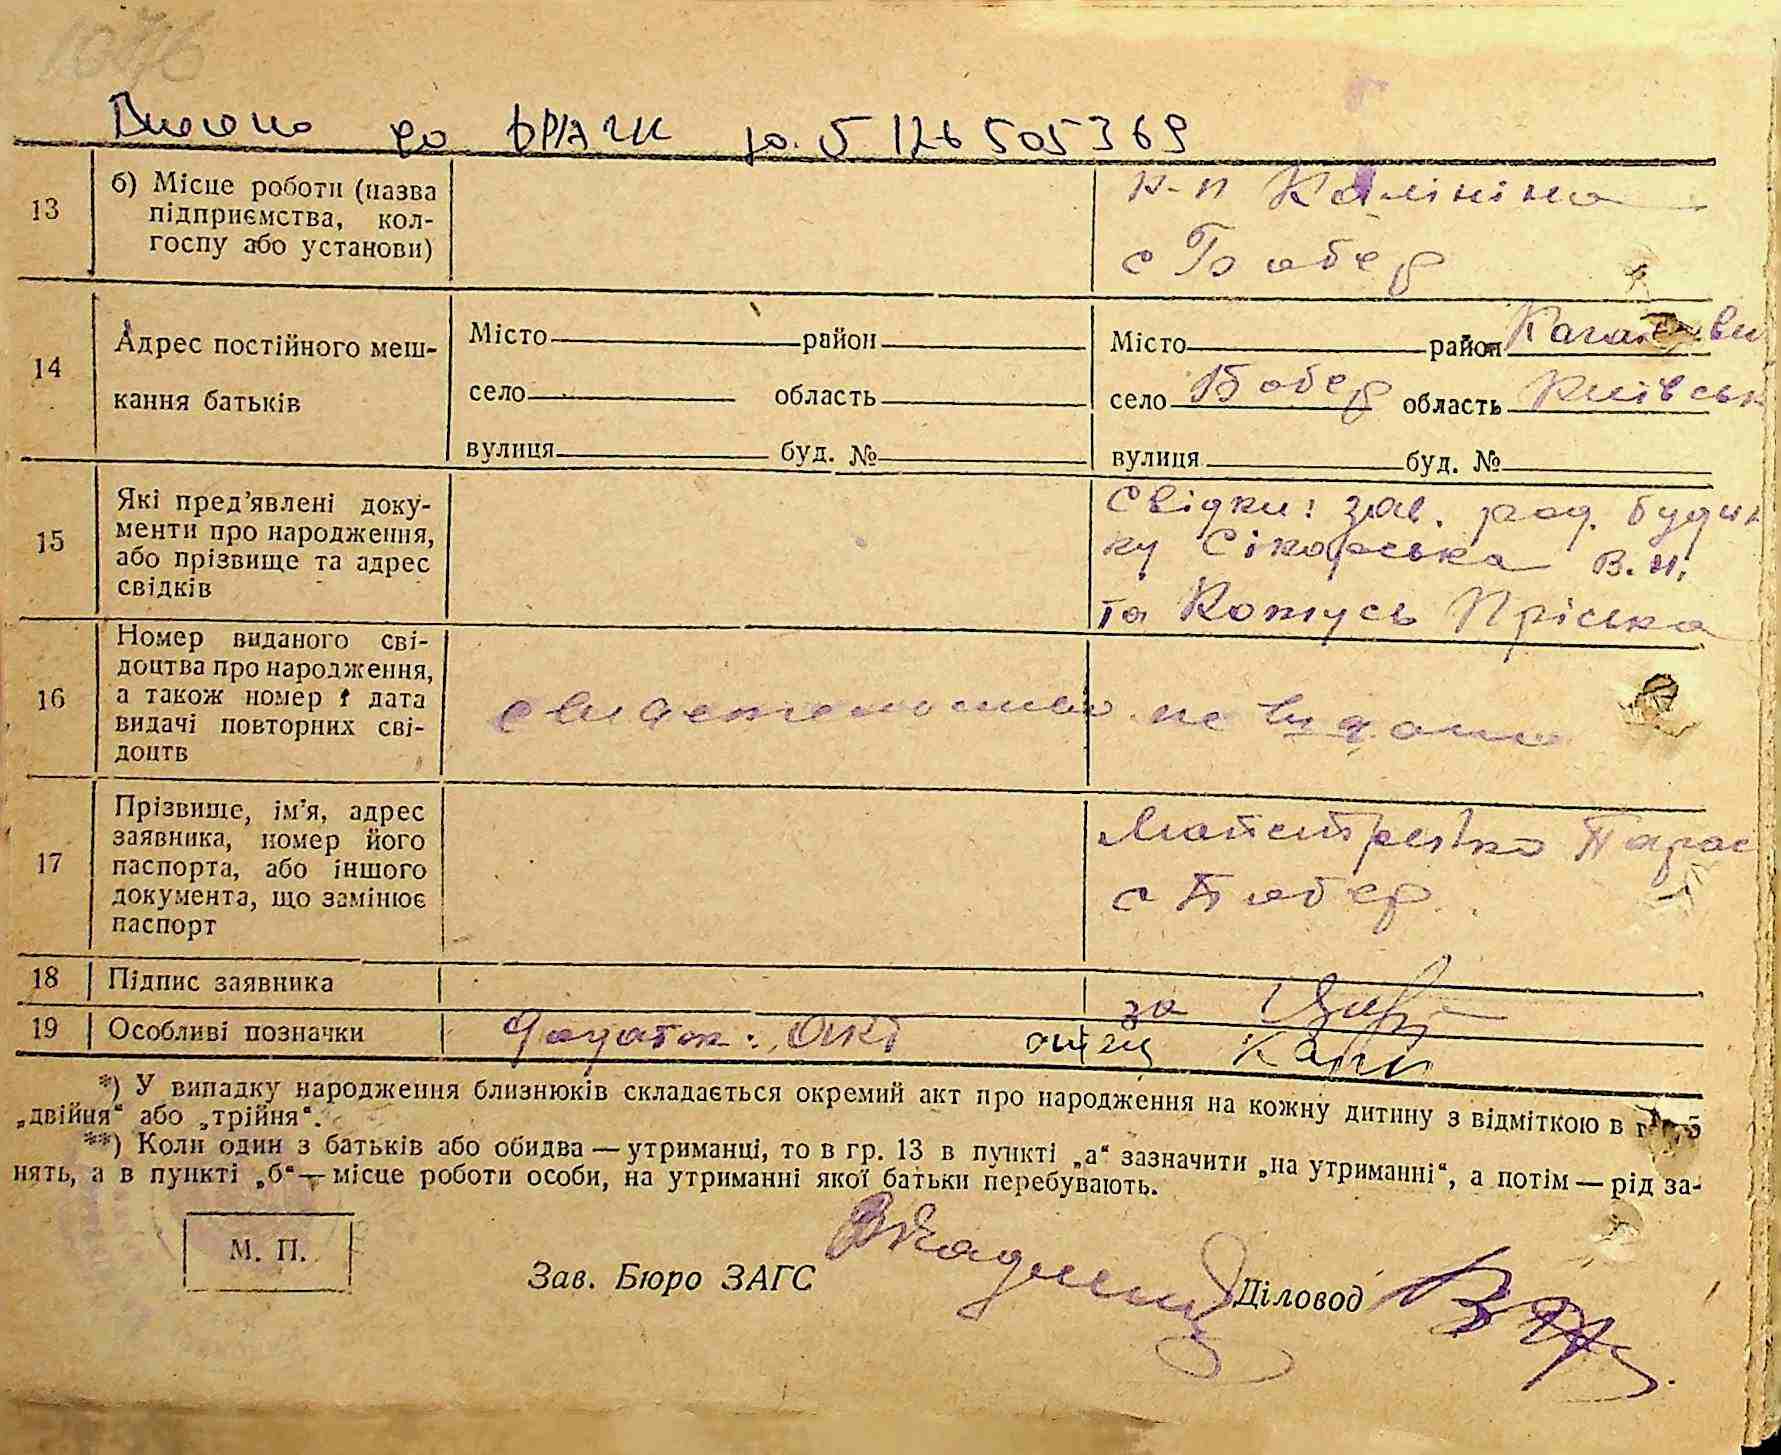 1046
Внесено до ДРАЦС
13
б) Місце роботи (назва
підприємства, кол-
госпу або установи)
к-п Калініна
с Бобер
14
Адрес постійного меш-
кання батьків
Місто район
село область
вулиця буд. №
Місто район
село Бобер область Київськ
вулиця буд. №
15
Які пред'явлені доку-
менти про народження,
або прізвище та адрес
свідків
Свідки: зав. род. будин
ку Сікорська В.И.
та Котусь Пріська
16
Номер виданого сві-
доцтва про народження,
а також номер і дата
видачі повторних сві-
доцтв
свидетельство не видано
17
Прізвище, ім'я, адрес
заявника, номер його
паспорта, або іншого
документа, що замінює
паспорт
Майстренко Парас
с Бобер
18
Підпис заявника
за
19
Особливі позначки
Додаток: Акт
*) У випадку народження близнюків складається окремий акт про народження на кожну дитину з відміткою в гр. 5
„двійня“ або „трійня“.
**) Коли один з батьків або обидва — утриманці, то в гр. 13 в пункті „а“ зазначити „на утриманні“, а потім — рід за-
нять, а в пункті „б“ — місце роботи особи, на утриманні якої батьки перебувають.
М. П.
Зав. Бюро ЗАГС
Діловод